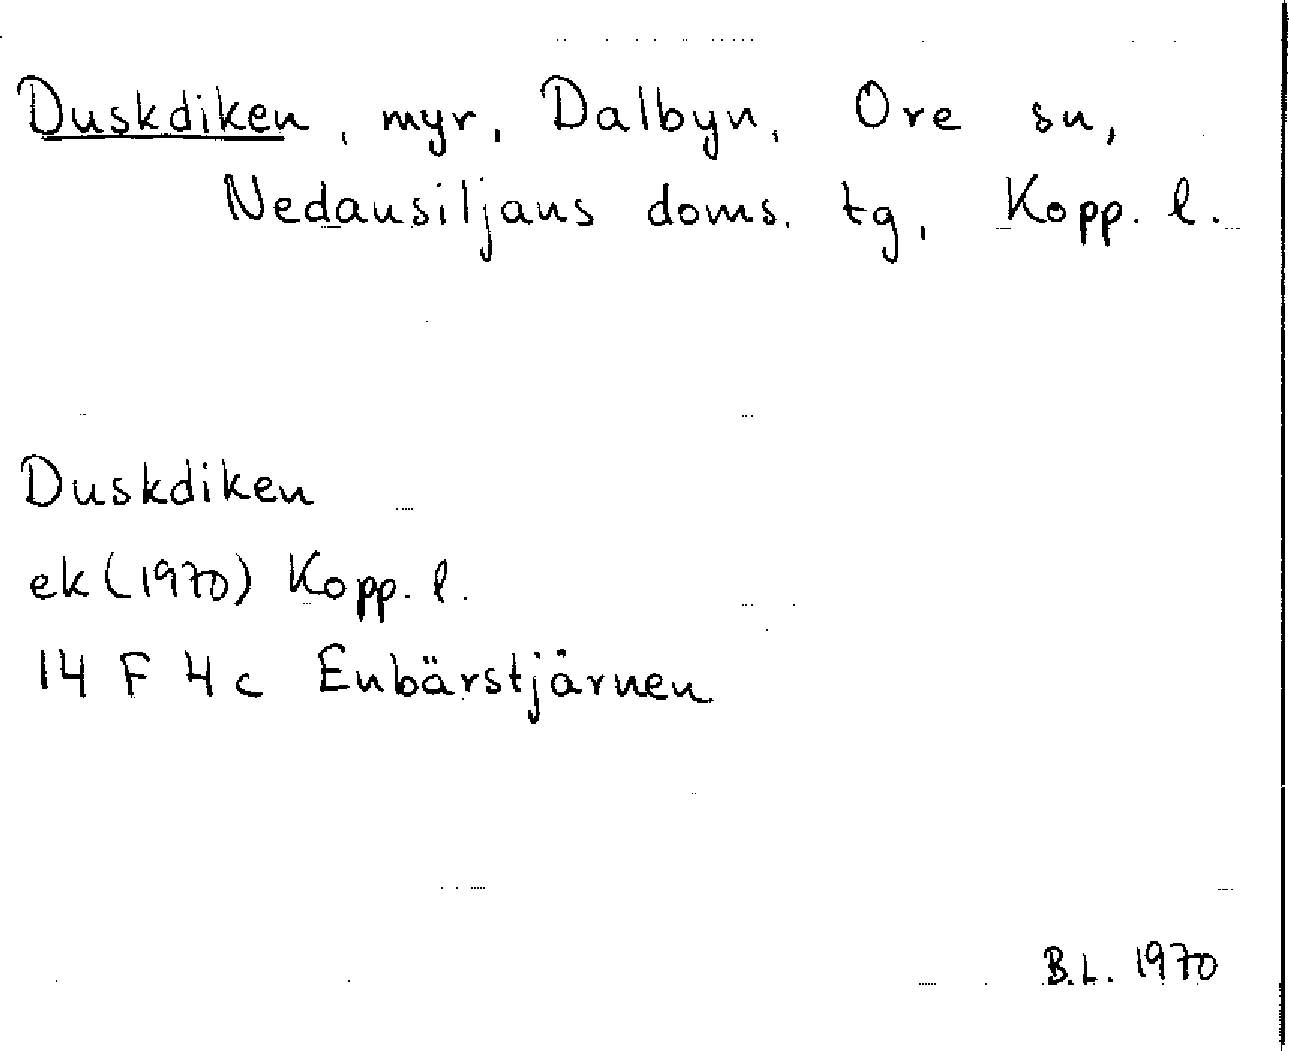 Duskdiken, myr, Dalbyn, Ore sn,
Nedansiljans doms. tg, Kopp. l.
Duskdiken
ek (1970) Kopp. l.
14 F 4c Enbärstjärnen
B.L. 1970